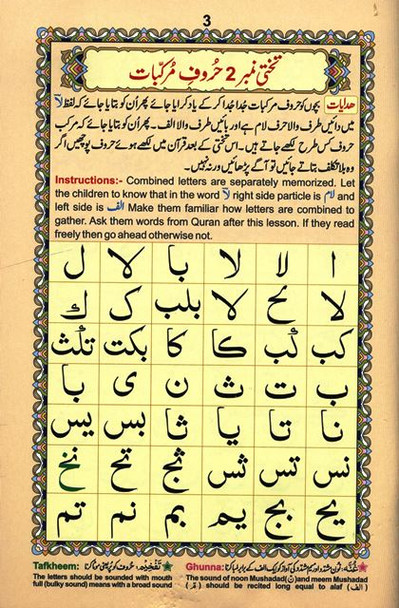 3
تختی نمبر 2 حُروفِ مُرکبّات
ھدایات بچوں کو حروف مرکبات جدا جدا کر کے یاد کرایا جائے پھر اُن کو بتایا جائے کہ لفظ لا
میں دائیں طرف والا حرف لام ہے اور بائیں طرف والا الف۔ پھر اُن کو بتایا جائے کہ مرکب
حروف کس طرح لکھے جاتے ہیں۔ اس تختی کے بعد قرآن میں لکھے ہوئے حروف پوچھیں اگر
وہ بلا تکلف بتاتے جائیں تو آگے پڑھائیں ورنہ نہیں۔
Instructions:- Combined letters are separately memorized. Let
the children to know that in the word لا right side particle is لام and
left side is الف Make them familiar how letters are combined to
gather. Ask them words from Quran after this lesson. If they read
freely then go ahead otherwise not.
ا لا لا با لا ل
لا لا بلب ک ك
کب كب کا کا بکت تلث
ب ت ث ن ی با
نا تا یا ثا بس یس
نس تس ثس ثج تح نخ
یح بج یم بم نم تم
Tafkheem: تَفْخِیْم: حروف کو پُر یعنی موٹا کرنا
The letters should be sounded with mouth
full (bulky sound) means with a broad sound
Ghunna: غُنَّہ: نون مشدد اور میم مشدد کی آواز کو ایک الف کے برابر لمبا کرنا
The sound of noon Mushadad (نّ) and meem Mushadad
(مّ) should be recited long equal to alaf (الف)